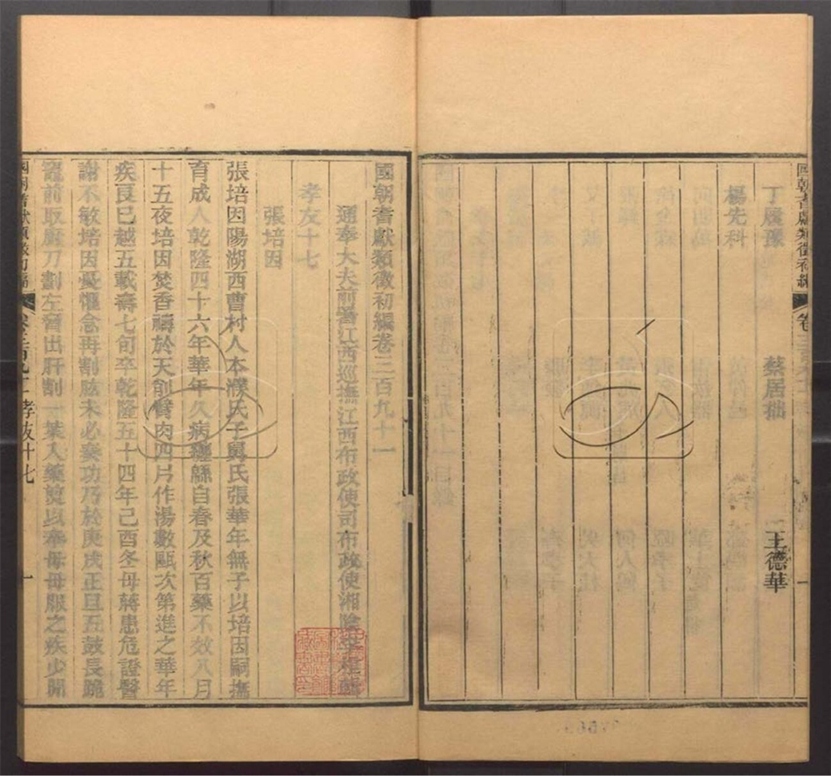 丁履豫 蔡居拙 王德華
楊先科
國朝耆獻類徵初編 卷三百九十一
國朝耆獻類徵初編卷三百九十一
通奉大夫前署江西巡撫江西布政使司布政使湘陰李桓輯
孝友十七
張培因
張培因陽湖西曹村人本濮氏子舅氏張華年無子以培因嗣撫
育成人乾隆四十六年華年久病纏緜自春及秋百藥不效八月
十五夜培因焚香禱於天刲臂肉四片作湯數甌次第進之華年
疾良已越五載壽七旬卒乾隆五十四年己酉冬母蔣患危證醫
謝不敏培因憂懼念再割肱未必奏功乃於庚戌正旦五鼓長跪
竈前取廚刀劃左脅出肝割一葉入藥煎以奉母母服之疾少閒
國朝耆獻類徵初編 卷三百九十一 孝友十七 一